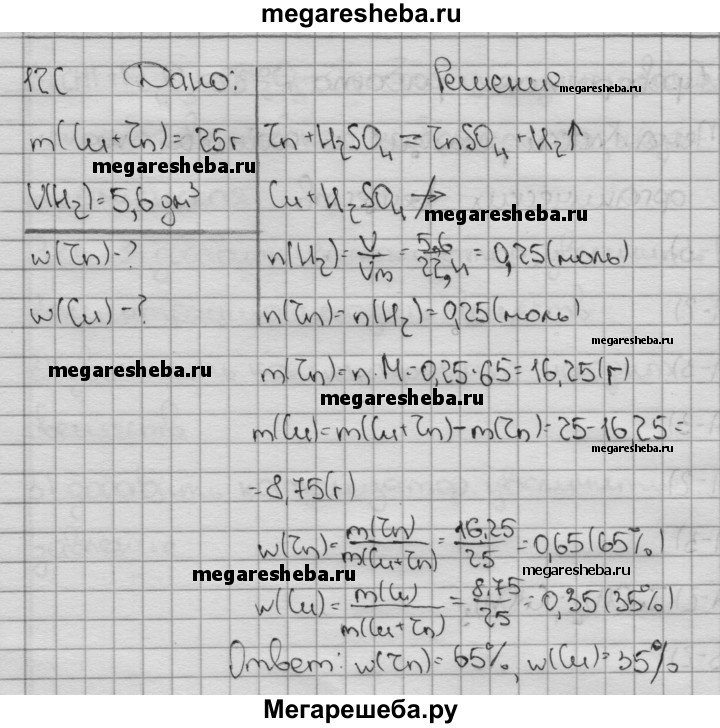 megaresheba.ru
12( Дано: Решение megaresheba.ru
m(Cu+Zn)=25г Zn+H₂SO₄=ZnSO₄+H₂↑
megaresheba.ru
V(H₂)=5,6 дм³ Cu+H₂SO₄↛
megaresheba.ru
w(Zn)-? n(H₂)=V/Vm=5,6/22,4=0,25(моль)
w(Cu)-? n(Zn)=n(H₂)=0,25(моль)
megaresheba.ru
megaresheba.ru m(Zn)=n·M=0,25·65=16,25(г)
megaresheba.ru
m(Cu)=m(Cu+Zn)-m(Zn)=25-16,25=
megaresheba.ru
=8,75(г)
w(Zn)=m(Zn)/m(Cu+Zn)=16,25/25=0,65(65%)
megaresheba.ru megaresheba.ru
w(Cu)=m(Cu)/m(Cu+Zn)=8,75/25=0,35(35%)
Ответ: w(Zn)=65%, w(Cu)=35%
Мегарешеба.ру